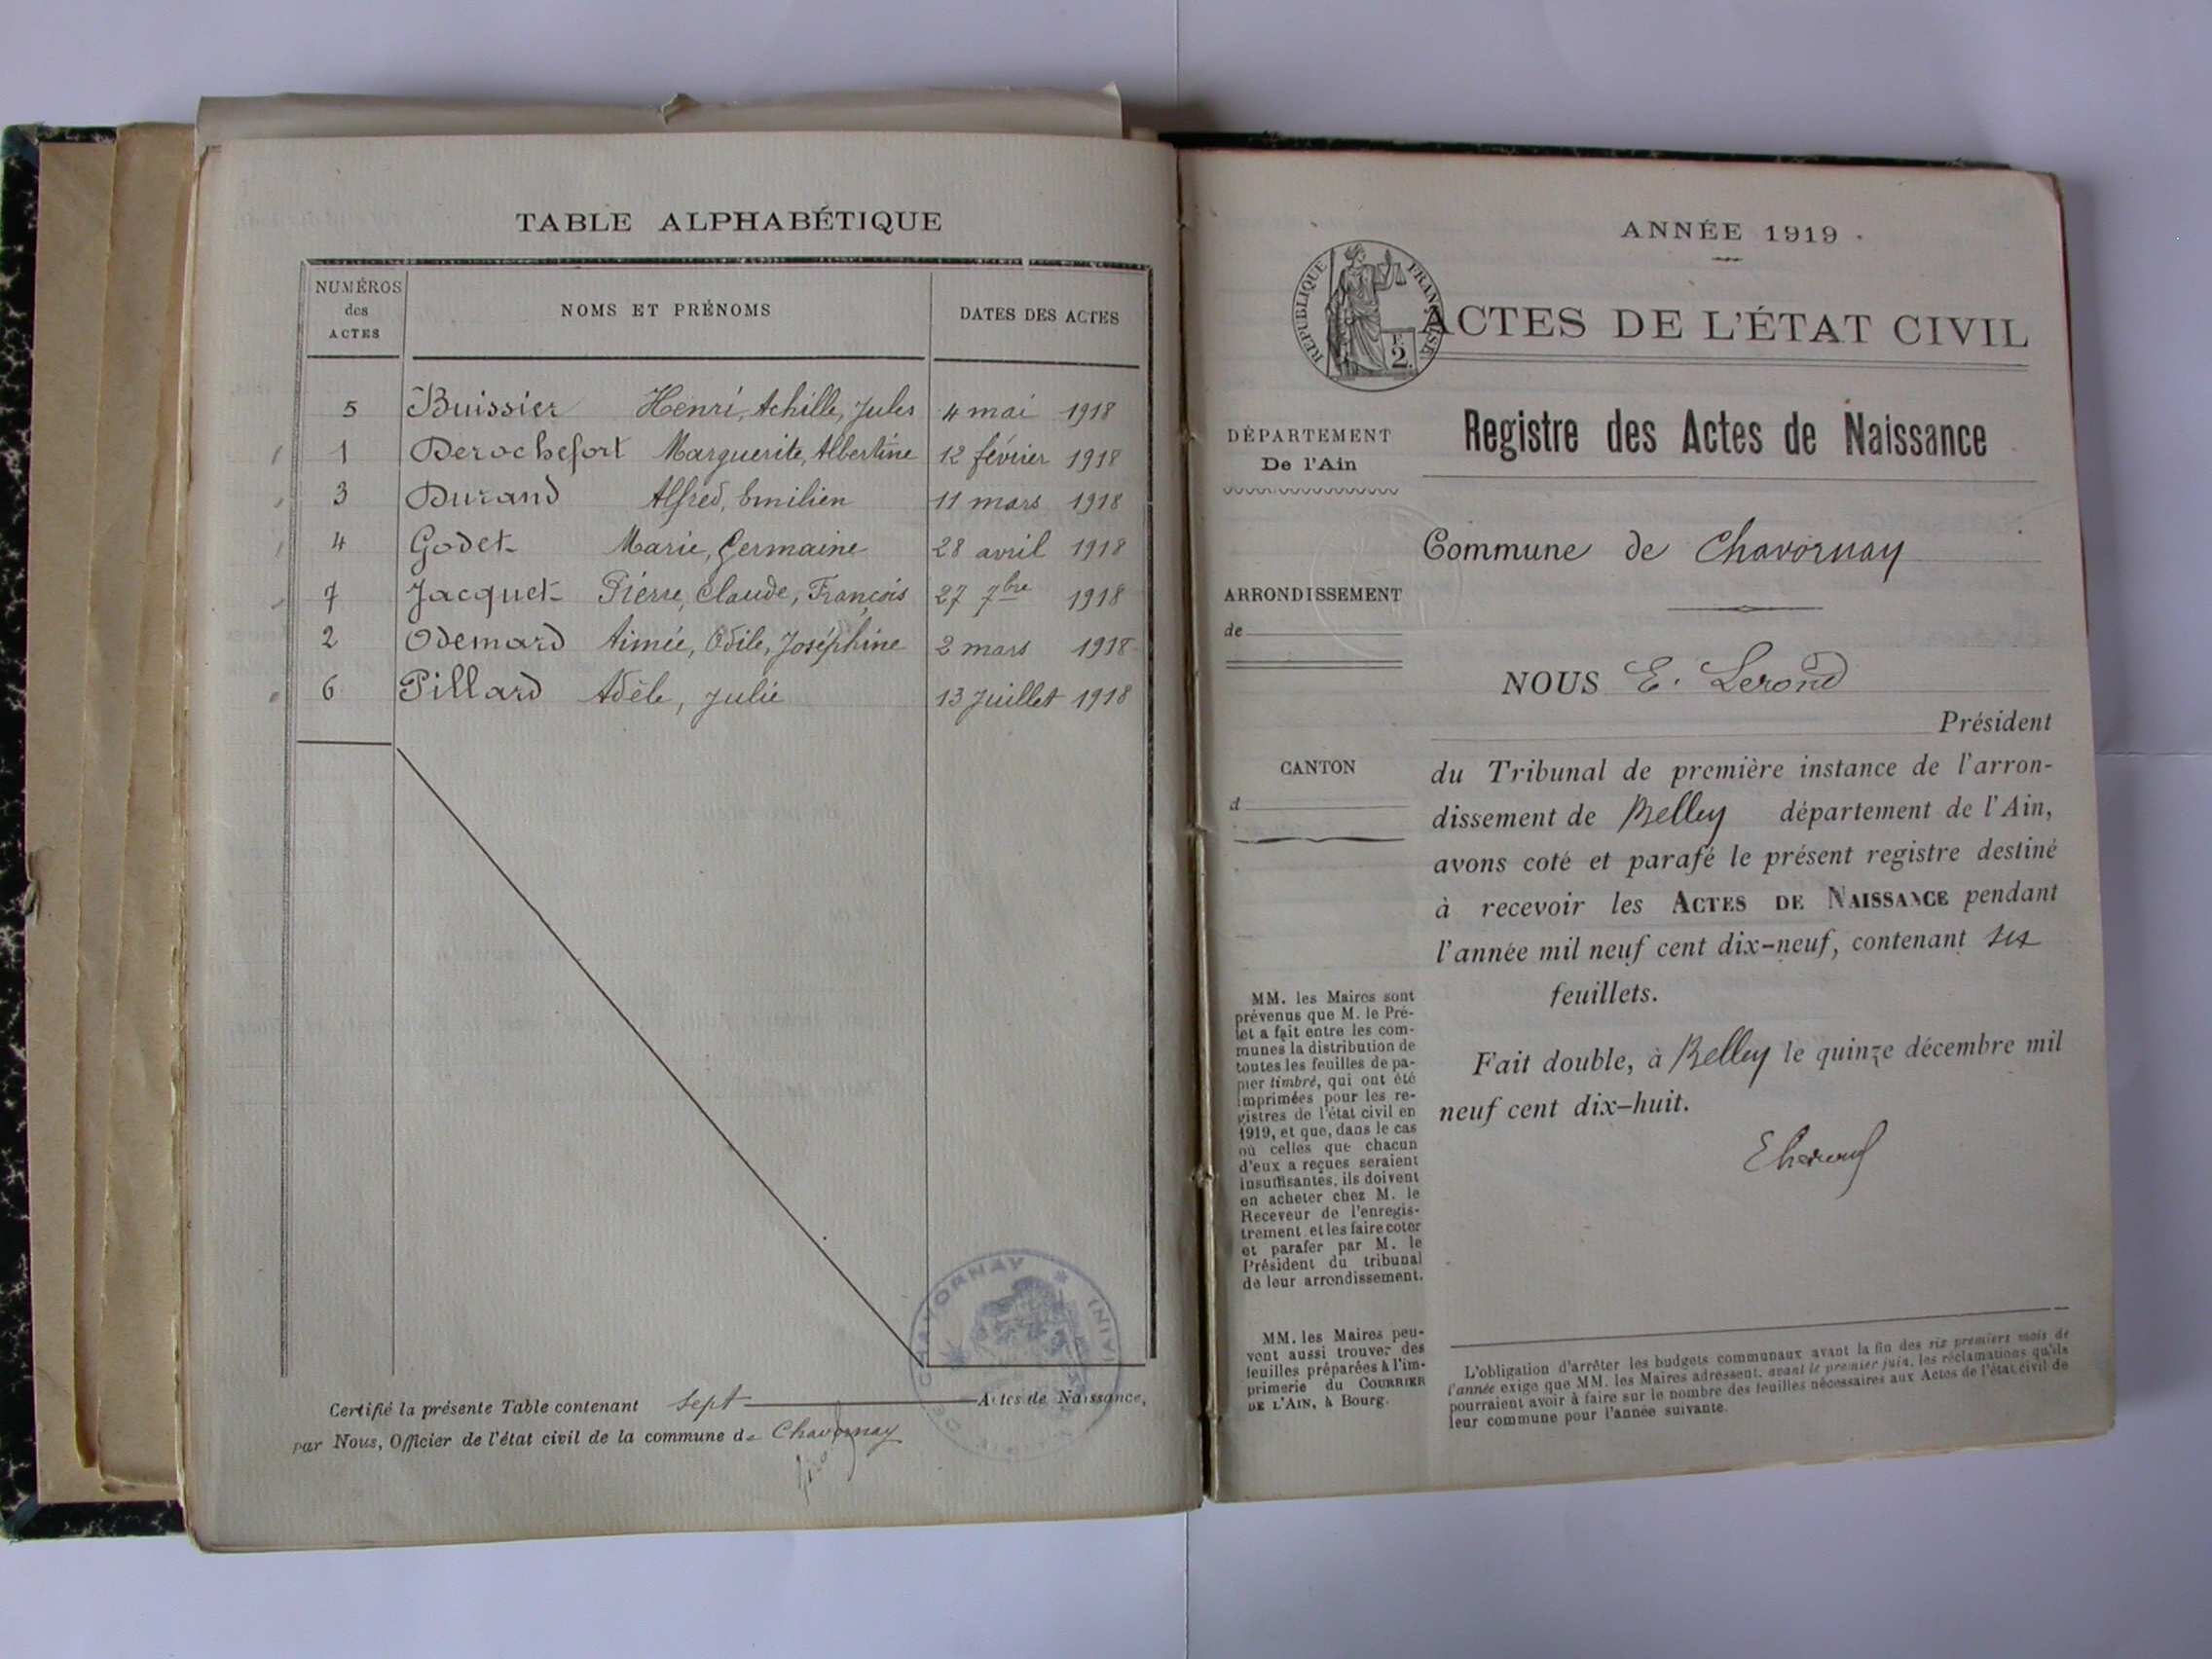 TABLE ALPHABÉTIQUE
NUMÉROS
des
ACTES
NOMS ET PRÉNOMS
DATES DES ACTES
5 Buissier Henri, Achille, Jules 4 mai 1918
1 Derochefort Marguerite, Albertine 12 février 1918
3 Durand Alfred, Emilien 11 mars 1918
4 Godet Marie, Germaine 28 avril 1918
7 Jacquet Pierre, Claude, François 27 7bre 1918
2 Odemard Aimée, Odile, Joséphine 2 mars 1918
6 Pillard Adèle, Julie 13 Juillet 1918
Certifié la présente Table contenant sept Actes de Naissance,
par Nous, Officier de l'état civil de la commune de Chavornay
CHAVORNAY * (AIN)
ANNÉE 1919
RÉPUBLIQUE FRANÇAISE
2
ACTES DE L'ÉTAT CIVIL
Registre des Actes de Naissance
DÉPARTEMENT
De l'Ain
Commune de Chavornay
ARRONDISSEMENT
de
NOUS E. Lerond
Président
CANTON
d
du Tribunal de première instance de l'arron-
dissement de Belley département de l'Ain,
avons coté et parafé le présent registre destiné
à recevoir les ACTES DE NAISSANCE pendant
l'année mil neuf cent dix-neuf, contenant six
feuillets.
Fait double, à Belley le quinze décembre mil
neuf cent dix-huit.
MM. les Maires sont
prévenus que M. le Pré-
fet a fait entre les com-
munes la distribution de
toutes les feuilles de pa-
pier timbré, qui ont été
imprimées pour les re-
gistres de l'état civil en
1919, et que, dans le cas
où celles que chacun
d'eux a reçues seraient
insuffisantes, ils doivent
en acheter chez M. le
Receveur de l'enregis-
trement et les faire coter
et parafer par M. le
Président du tribunal
de leur arrondissement.
MM. les Maires peu-
vent aussi trouver des
feuilles préparées à l'im-
primerie du COURRIER
DE L'AIN, à Bourg.
L'obligation d'arrêter les budgets communaux avant la fin des six premiers mois de
l'année exige que MM. les Maires adressent, avant le premier juin, les réclamations qu'ils
pourraient avoir à faire sur le nombre des feuilles nécessaires aux Actes de l'état civil de
leur commune pour l'année suivante.